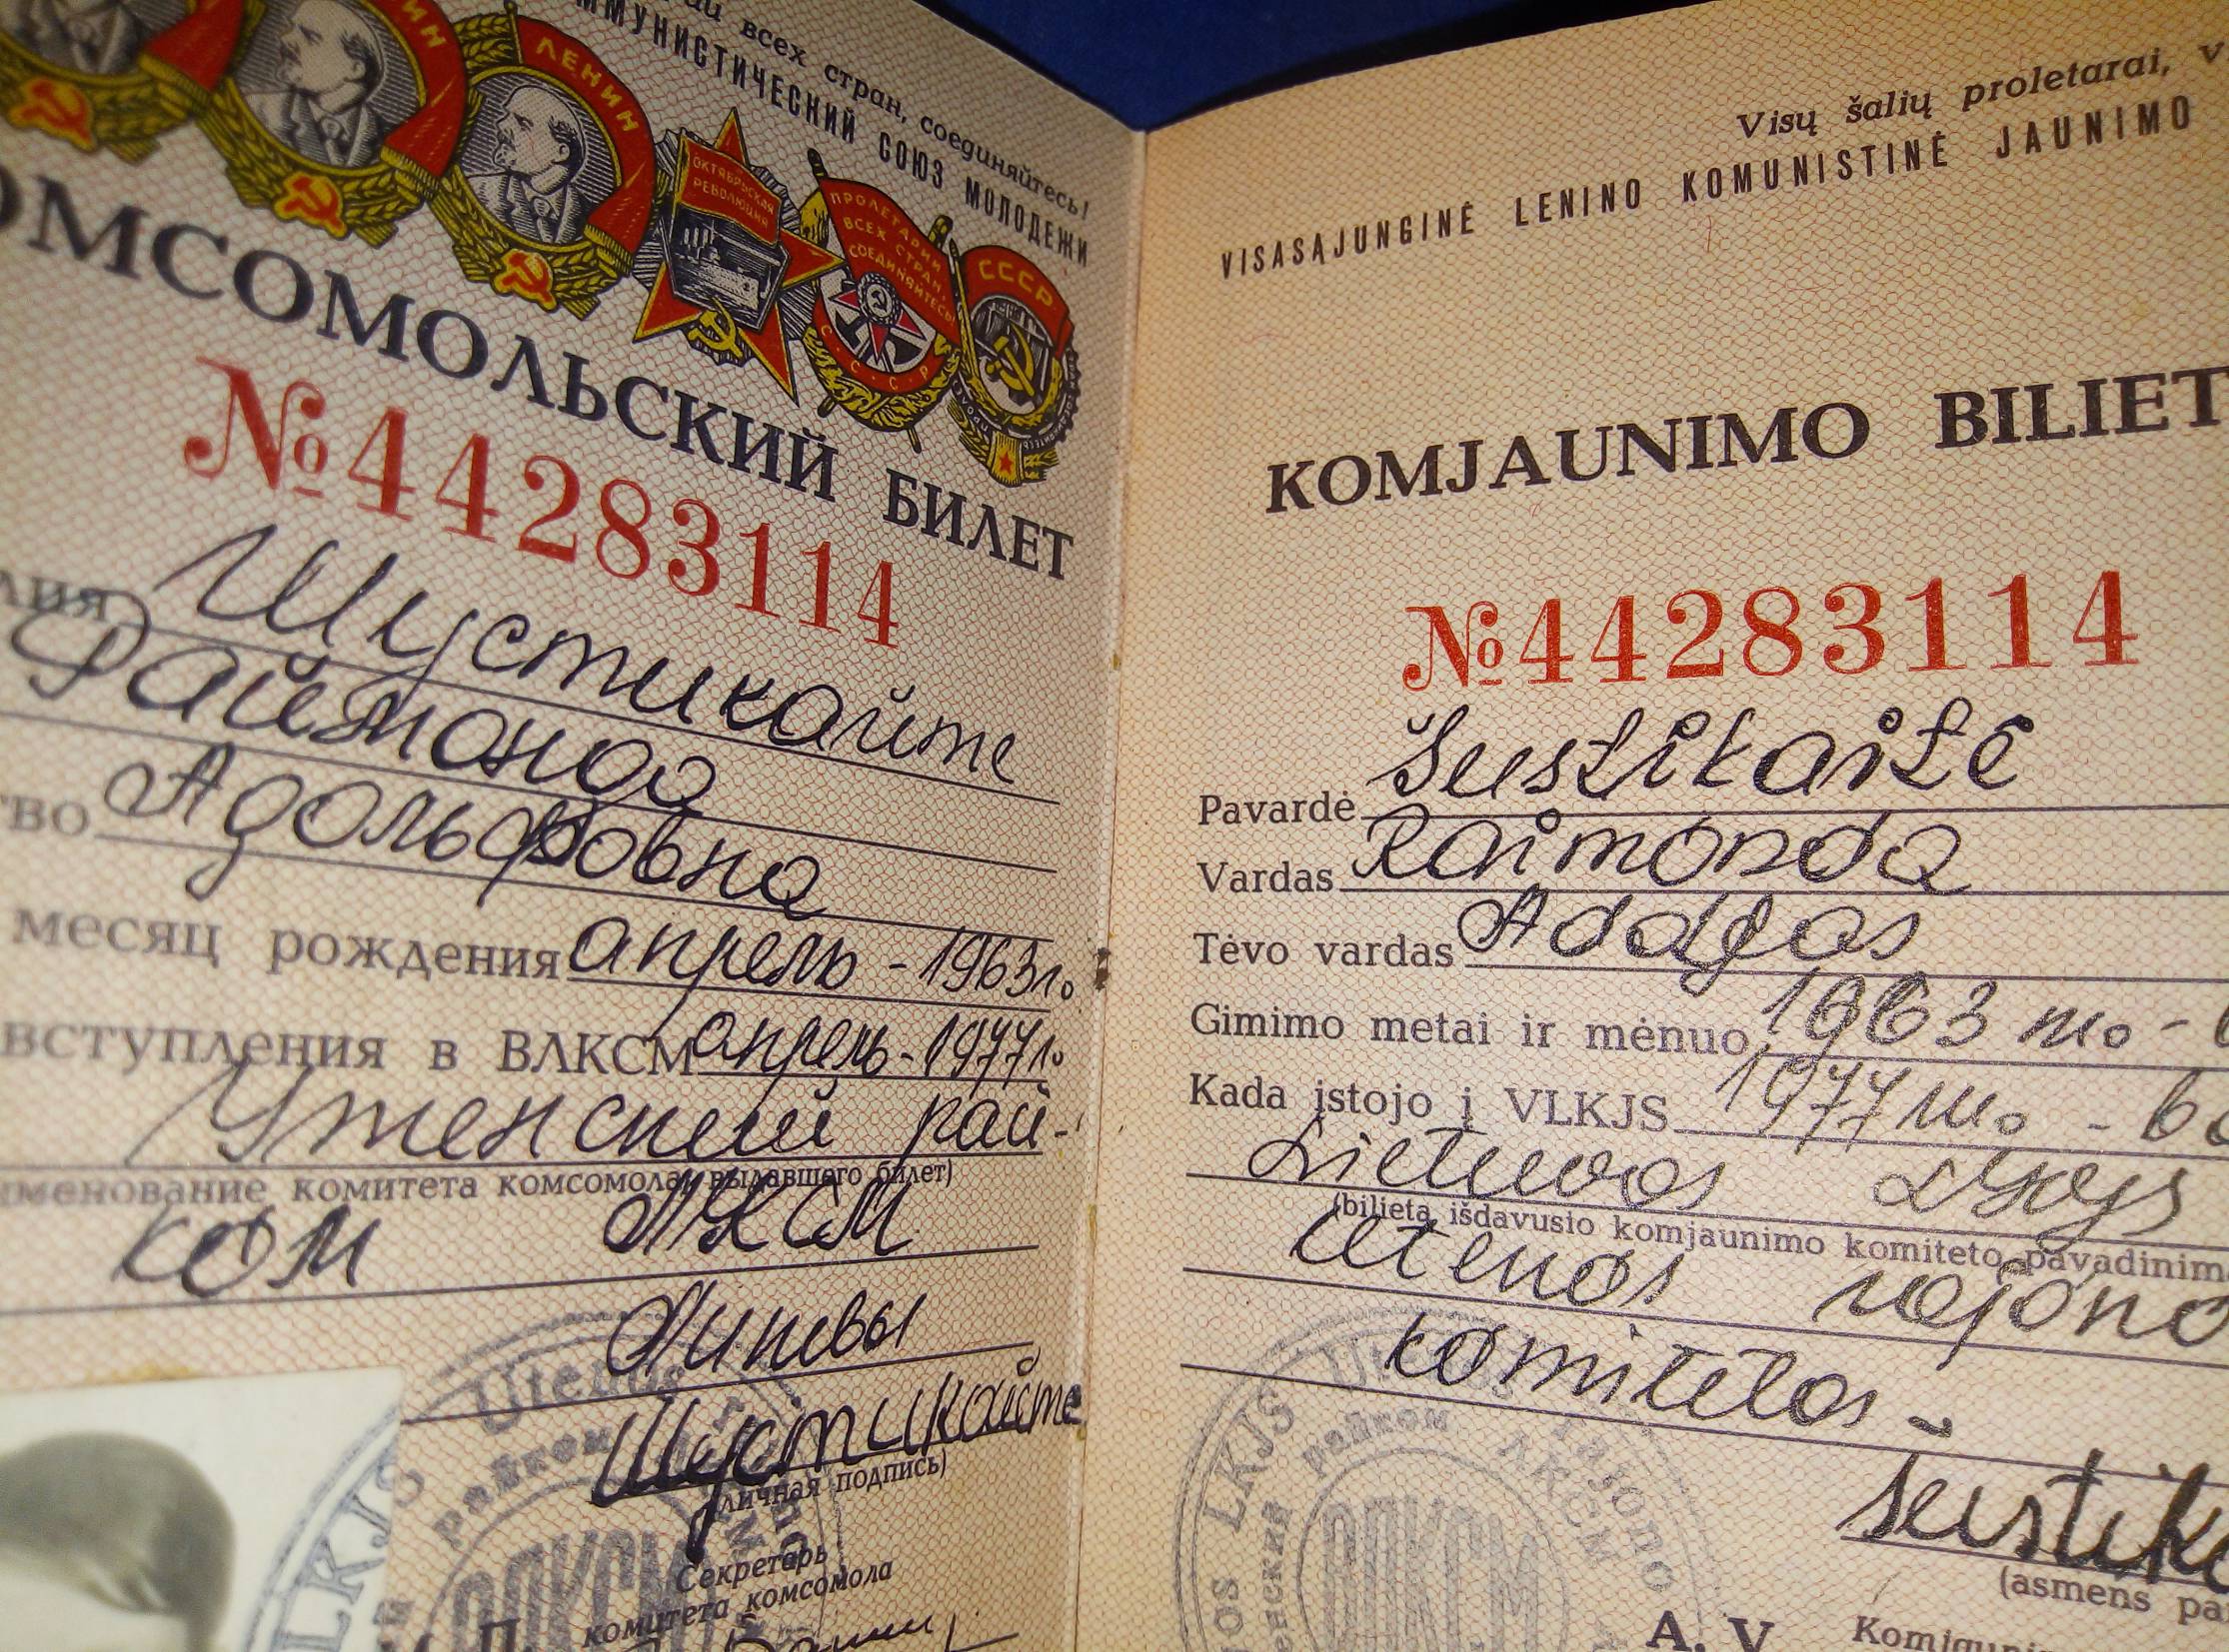 всех стран, соединяйтесь!
КОММУНИСТИЧЕСКИЙ СОЮЗ МОЛОДЕЖИ
ЛЕНИН
ОКТЯБРЬСКАЯ
РЕВОЛЮЦИЯ
ПРОЛЕТАРИИ
ВСЕХ СТРАН,
СОЕДИНЯЙТЕСЬ!
С С С Р
СССР
ОМСОМОЛЬСКИЙ БИЛЕТ
№44283114
лия Шустикайте
Раймонда
во Адольфовна
месяц рождения апрель - 1963 г.
вступления в ВЛКСМ апрель - 1977 г.
Утенский рай-
именование комитета комсомола, выдавшего билет)
ком ЛКСМ
Литвы
Шустикайте
(личная подпись)
Секретарь
комитета комсомола
Utenos
райком
LKJS
ВЛКСМ
Visų šalių proletarai, v
VISASĄJUNGINĖ LENINO KOMUNISTINĖ JAUNIMO
KOMJAUNIMO BILIET
№44283114
Pavardė Šustikaitė
Vardas Raimonda
Tėvo vardas Adolfas
Gimimo metai ir mėnuo 1963 m. -
Kada įstojo į VLKJS 1977 m. - ba
Lietuvos LKJS
(bilietą išdavusio komjaunimo komiteto pavadinim
Utenos rajono
komitetas -
Šustika
(asmens pa
A. V.
Komjaunim
LKJS Utenos rajono
райком ЛКСМ
ВЛКСМ